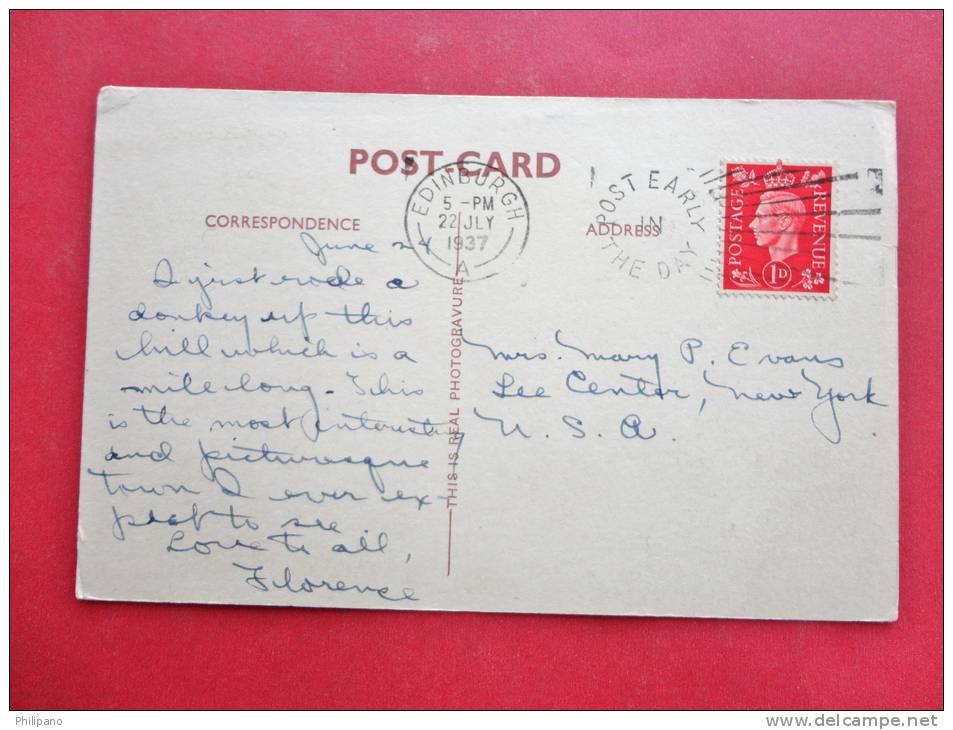 POST CARD
EDINBURGH
5 - PM
22 JLY
1937
A
POST EARLY
IN
THE DAY
POSTAGE
REVENUE
1D
CORRESPONDENCE
ADDRESS
June 24
I just rode a
donkey up this
hill which is a
mile long. This
is the most interesting
and picturesque
town I ever ex-
pect to see
Love to all,
Florence
THIS IS REAL PHOTOGRAVURE
Mrs. Mary P. Evans
Lee Center, New York
U. S. A.
Philipano
www.delcampe.net